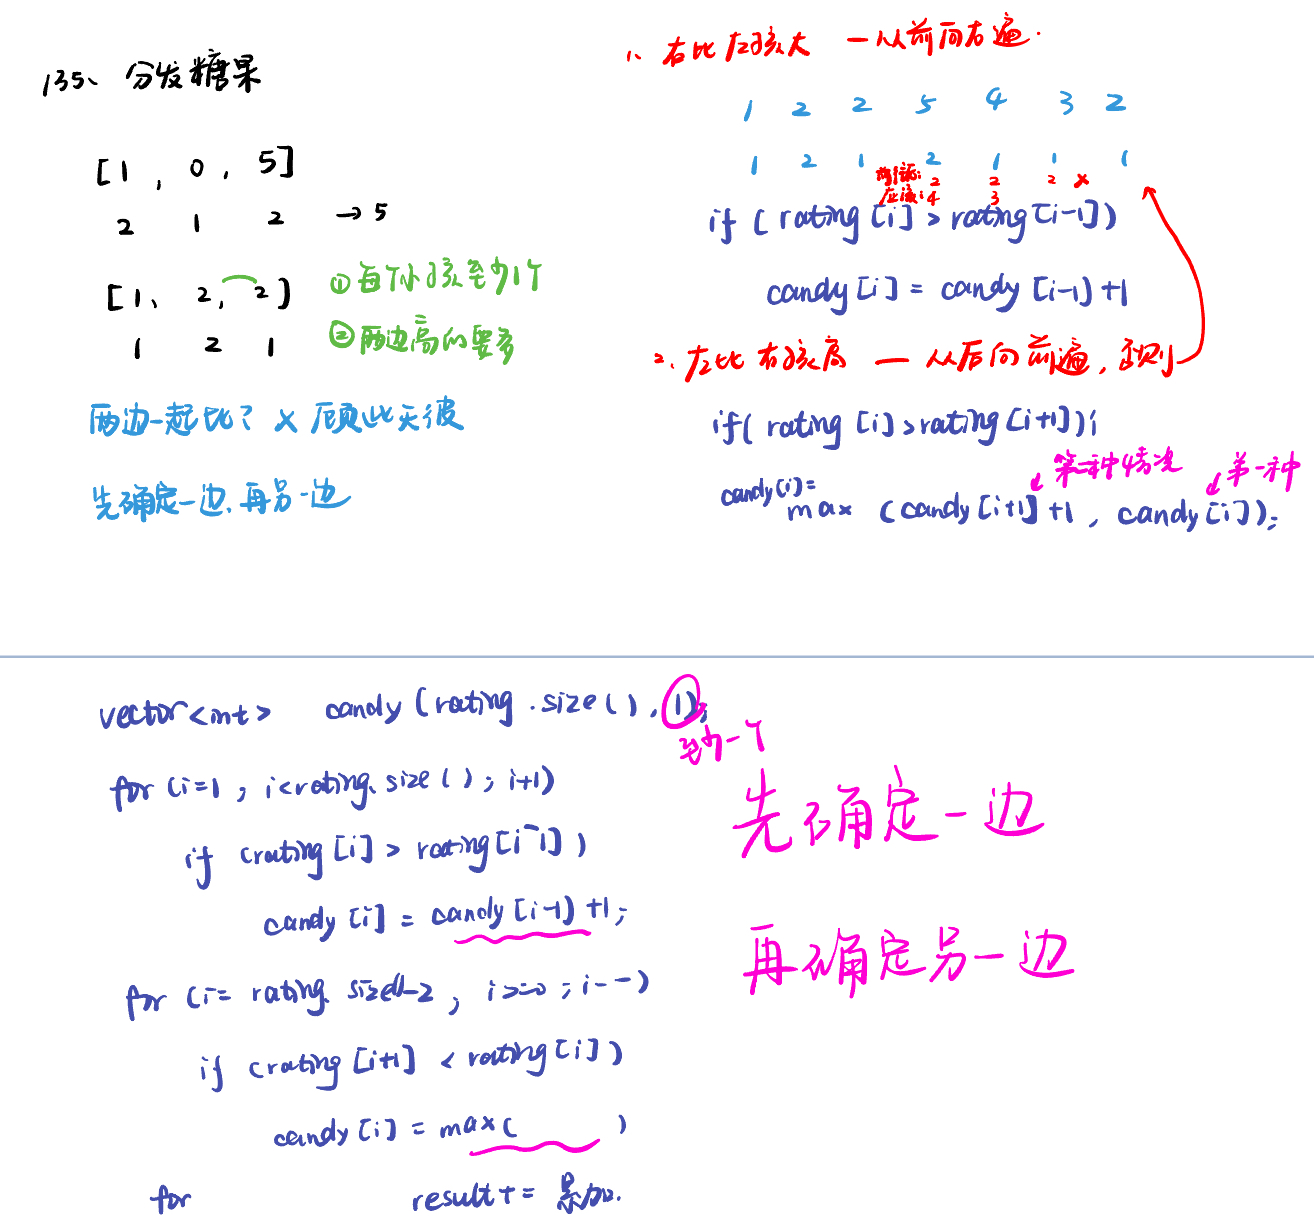 135、分发糖果
[1, 0, 5]
2 1 2 → 5
[1、2, 2]
1 2 1
①每个小孩至少1个
②两边高的要多
两边一起比? × 顾此失彼
先确定一边,再另一边
1、右比左孩大 一从前向右遍.
1 2 2 5 4 3 2
1 2 1 2 1 1 1
2 2 2 ×
应该:4 3
if (rating[i] > rating[i-1])
candy[i] = candy[i-1]+1
2、左比右孩高 — 从后向前遍,否则
if( rating[i]>rating[i+1]);
第二种情况 第一种
candy(i)=
max (candy[i+1]+1, candy[i]);
vector<int> candy(rating.size(), 1);
至少一个
for (i=1; i<rating.size(); i+1)
if (rating[i] > rating[i-1])
candy[i] = candy[i-1)+1;
for (i= rating.size()-2; i>=0; i--)
if (rating[i+1] < rating[i])
candy[i] = max( )
for result += 累加.
先确定一边
再确定另一边